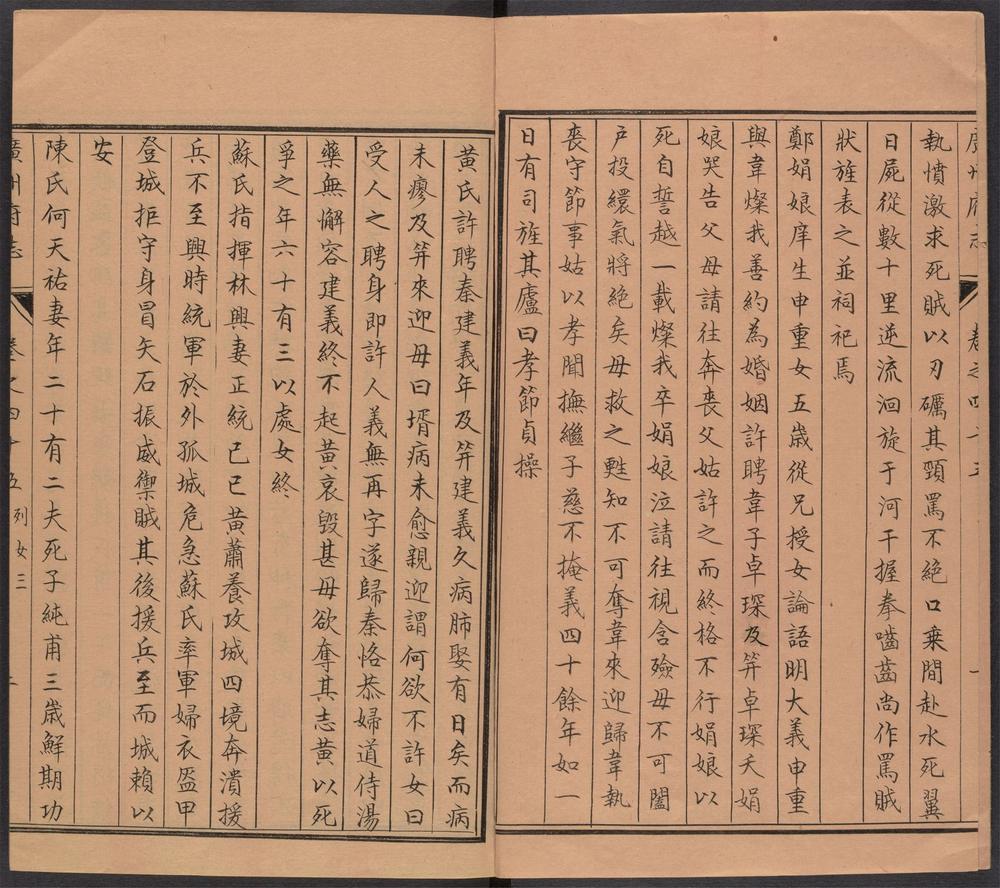 執憤激求死賊以刃礪其頸罵不絕口乗間赴水死翼
日屍從數十里逆流洄旋于河干握拳嚙齒尚作罵賊
狀旌表之並祠祀焉
鄭娟娘庠生申重女五歲從兄授女論語明大義申重
與韋燦我善約為婚姻許聘韋子卓琛及筓卓琛夭娟
娘哭告父母請往奔喪父姑許之而終格不行娟娘以
死自誓越一載燦我卒娟娘泣請往視含殮母不可闔
戶投繯氣將絕矣母救之甦知不可奪韋來迎歸韋執
喪守節事姑以孝聞撫繼子慈不掩義四十餘年如一
日有司旌其廬曰孝節貞操
黃氏許聘秦建義年及筓建義久病肺娶有日矣而病
未瘳及筓來迎母曰壻病未愈親迎謂何欲不許女曰
受人之聘身即許人義無再字遂歸秦恪恭婦道侍湯
藥無懈容建義終不起黃哀毀甚母欲奪其志黃以死
爭之年六十有三以處女終
蘇氏指揮林興妻正統已巳黃蕭養攻城四境奔潰援
兵不至興時統軍於外孤城危急蘇氏率軍婦衣盔甲
登城拒守身冒矢石振威禦賊其後援兵至而城賴以
安
陳氏何天祐妻年二十有二夫死子純甫三歲鮮期功
廣州府志
卷之四十五
列女三